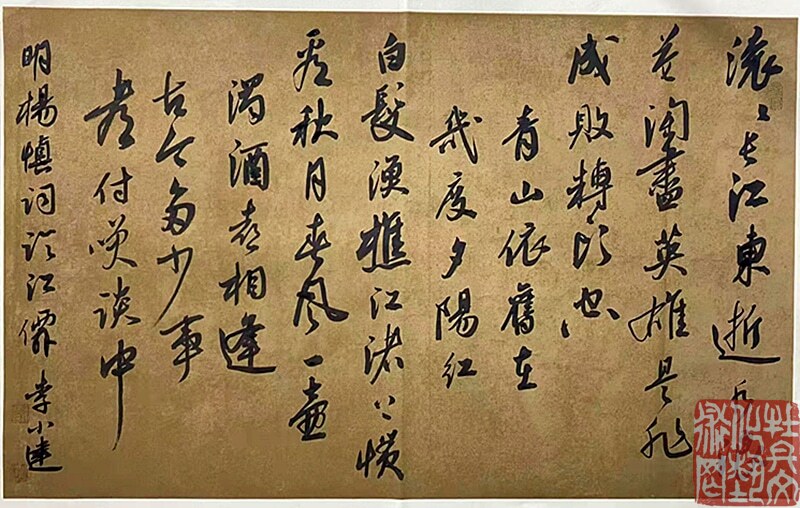 滚滚長江東逝水
花淘盡英雄是非
成敗轉頭空
青山依舊在
幾度夕陽紅
白髮漁樵江渚上慣
看秋月春風一壺
濁酒喜相逢
古今多少事
都付笑談中
明楊慎詞臨江僊 李小